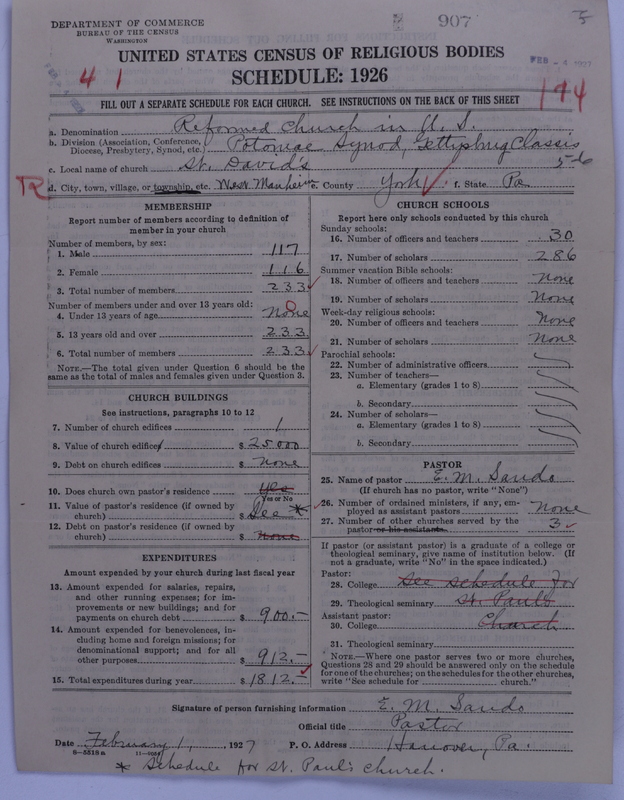 DEPARTMENT OF COMMERCE
BUREAU OF THE CENSUS
WASHINGTON
907
UNITED STATES CENSUS OF RELIGIOUS BODIES
SCHEDULE: 1926
FEB - 4 1927
4 1
194
FILL OUT A SEPARATE SCHEDULE FOR EACH CHURCH. SEE INSTRUCTIONS ON THE BACK OF THIS SHEET
a. Denomination Reformed Church in U. S.
b. Division (Association, Conference, Diocese, Presbytery, Synod, etc.) Potomac Synod, Gettysburg Classis
c. Local name of church St. David's 56
R d. City, town, village, or township, etc. West Manheim e. County York f. State Pa
MEMBERSHIP
Report number of members according to definition of
member in your church
Number of members, by sex:
1. Male 117
2. Female 116
3. Total number of members 233
Number of members under and over 13 years old:
4. Under 13 years of age None
5. 13 years old and over 233
6. Total number of members 233
NOTE.—The total given under Question 6 should be
same as the total of males and females given under Question 3.
CHURCH BUILDINGS
See instructions, paragraphs 10 to 12
7. Number of church edifices 1
8. Value of church edifices $ 25000
9. Debt on church edifices $ None
10. Does church own pastor's residence Yes
Yes or No
11. Value of pastor's residence (if owned by
church) $ See *
12. Debt on pastor's residence (if owned by
church) $ None
EXPENDITURES
Amount expended by your church during last fiscal year
13. Amount expended for salaries, repairs,
and other running expenses; for im-
provements or new buildings; and for
payments on church debt $ 900.—
14. Amount expended for benevolences, in-
cluding home and foreign missions; for
denominational support; and for all
other purposes $ 912.—
15. Total expenditures during year $ 1812.—
CHURCH SCHOOLS
Report here only schools conducted by this church
Sunday schools:
16. Number of officers and teachers 30
17. Number of scholars 286
Summer vacation Bible schools:
18. Number of officers and teachers None
19. Number of scholars None
Week-day religious schools:
20. Number of officers and teachers None
21. Number of scholars None
Parochial schools:
22. Number of administrative officers
23. Number of teachers—
a. Elementary (grades 1 to 8)
b. Secondary
24. Number of scholars—
a. Elementary (grades 1 to 8)
b. Secondary
PASTOR
25. Name of pastor E. M. Sando
(If church has no pastor, write "None")
26. Number of ordained ministers, if any, em-
ployed as assistant pastors None
27. Number of other churches served by the
pastor or his assistants 3
If pastor (or assistant pastor) is a graduate of a college or
theological seminary, give name of institution below. (If
not a graduate, write "No" in the space indicated.)
Pastor:
28. College See schedule for
29. Theological seminary St. Paul's
Assistant pastor:
30. College Church
31. Theological seminary
NOTE.—Where one pastor serves two or more churches,
Questions 28 and 29 should be answered only on the schedule
for one of the churches; on the schedules for the other churches,
write "See schedule for church."
Signature of person furnishing information E. M. Sando
Official title Pastor
Date February 1, 1927 P. O. Address Hanover, Pa.
* Schedule for St. Paul's church.